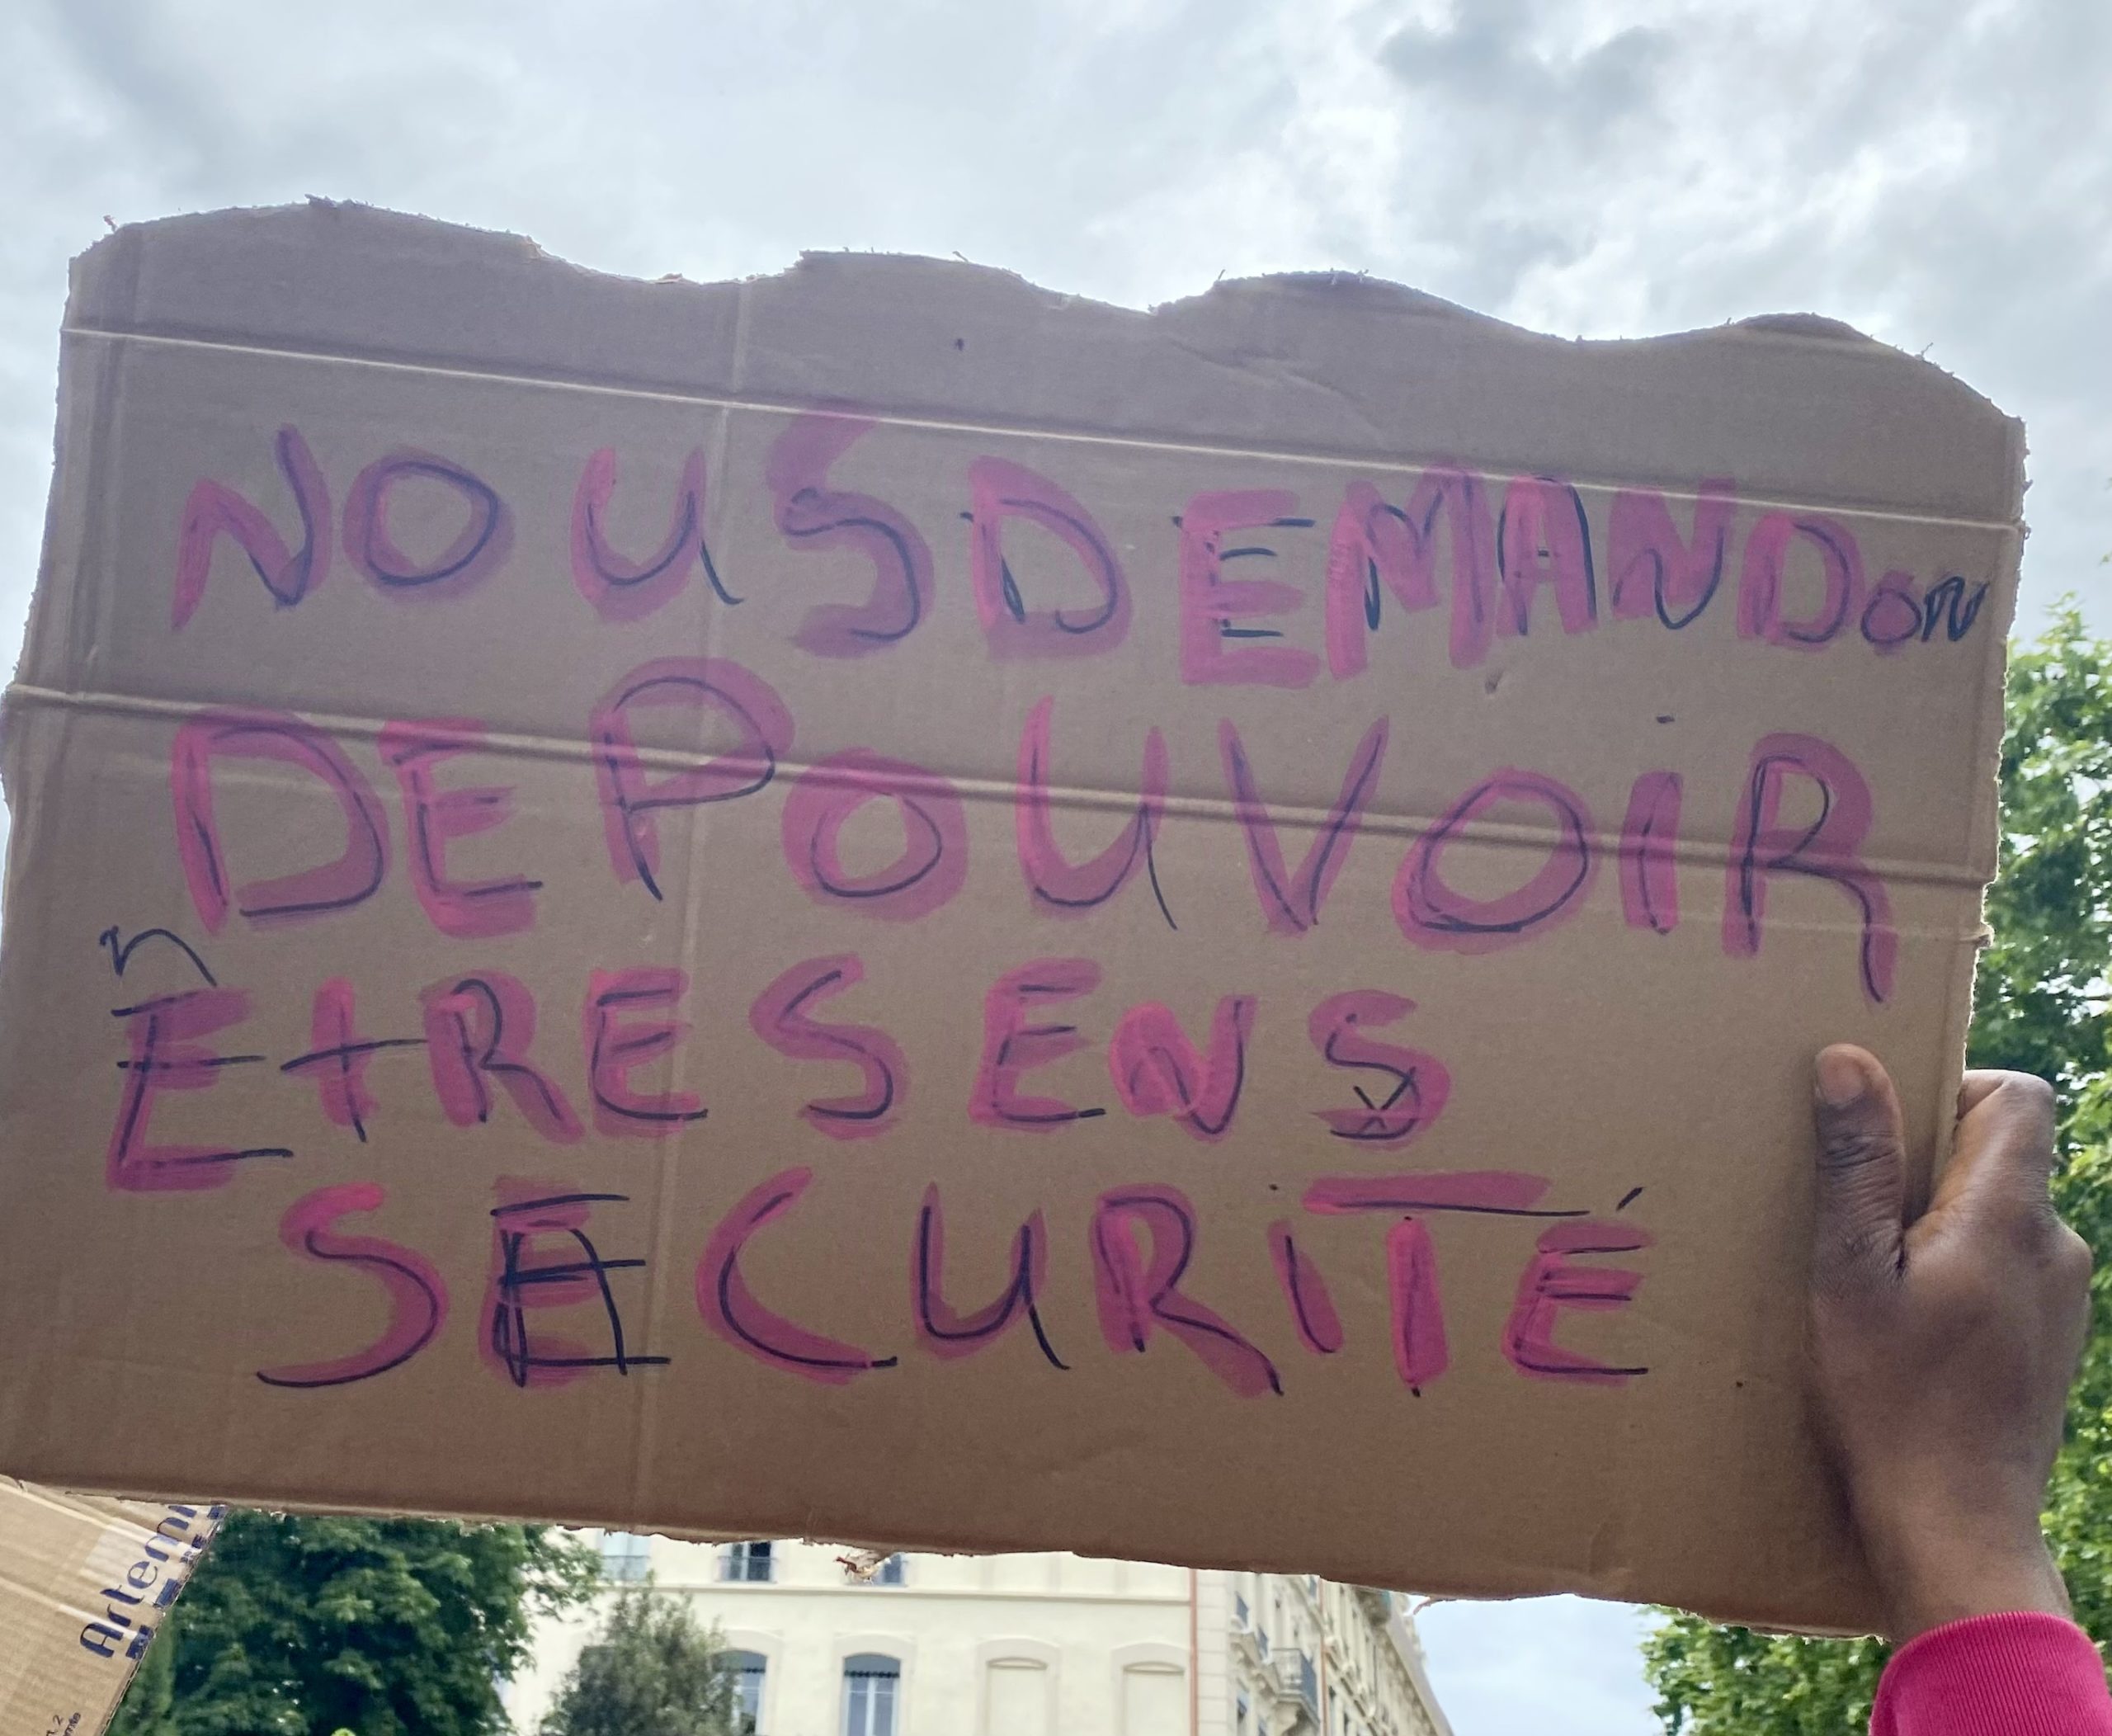 NOUS DEMANDON
DE POUVOIR
ÊTRE SENS
SECURITÉ
Artemi